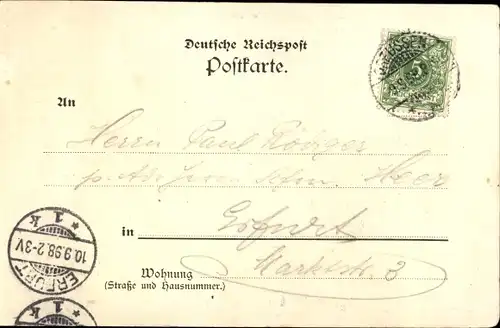 Deutsche Reichspost
Postkarte.
An
Herrn Paul Rödiger
Heer
in Erfurt
Marktstr. 3
Wohnung
(Straße und Hausnummer.)
ERFURT
10.9.98.2-3V
* 1 k
* 1 k
5